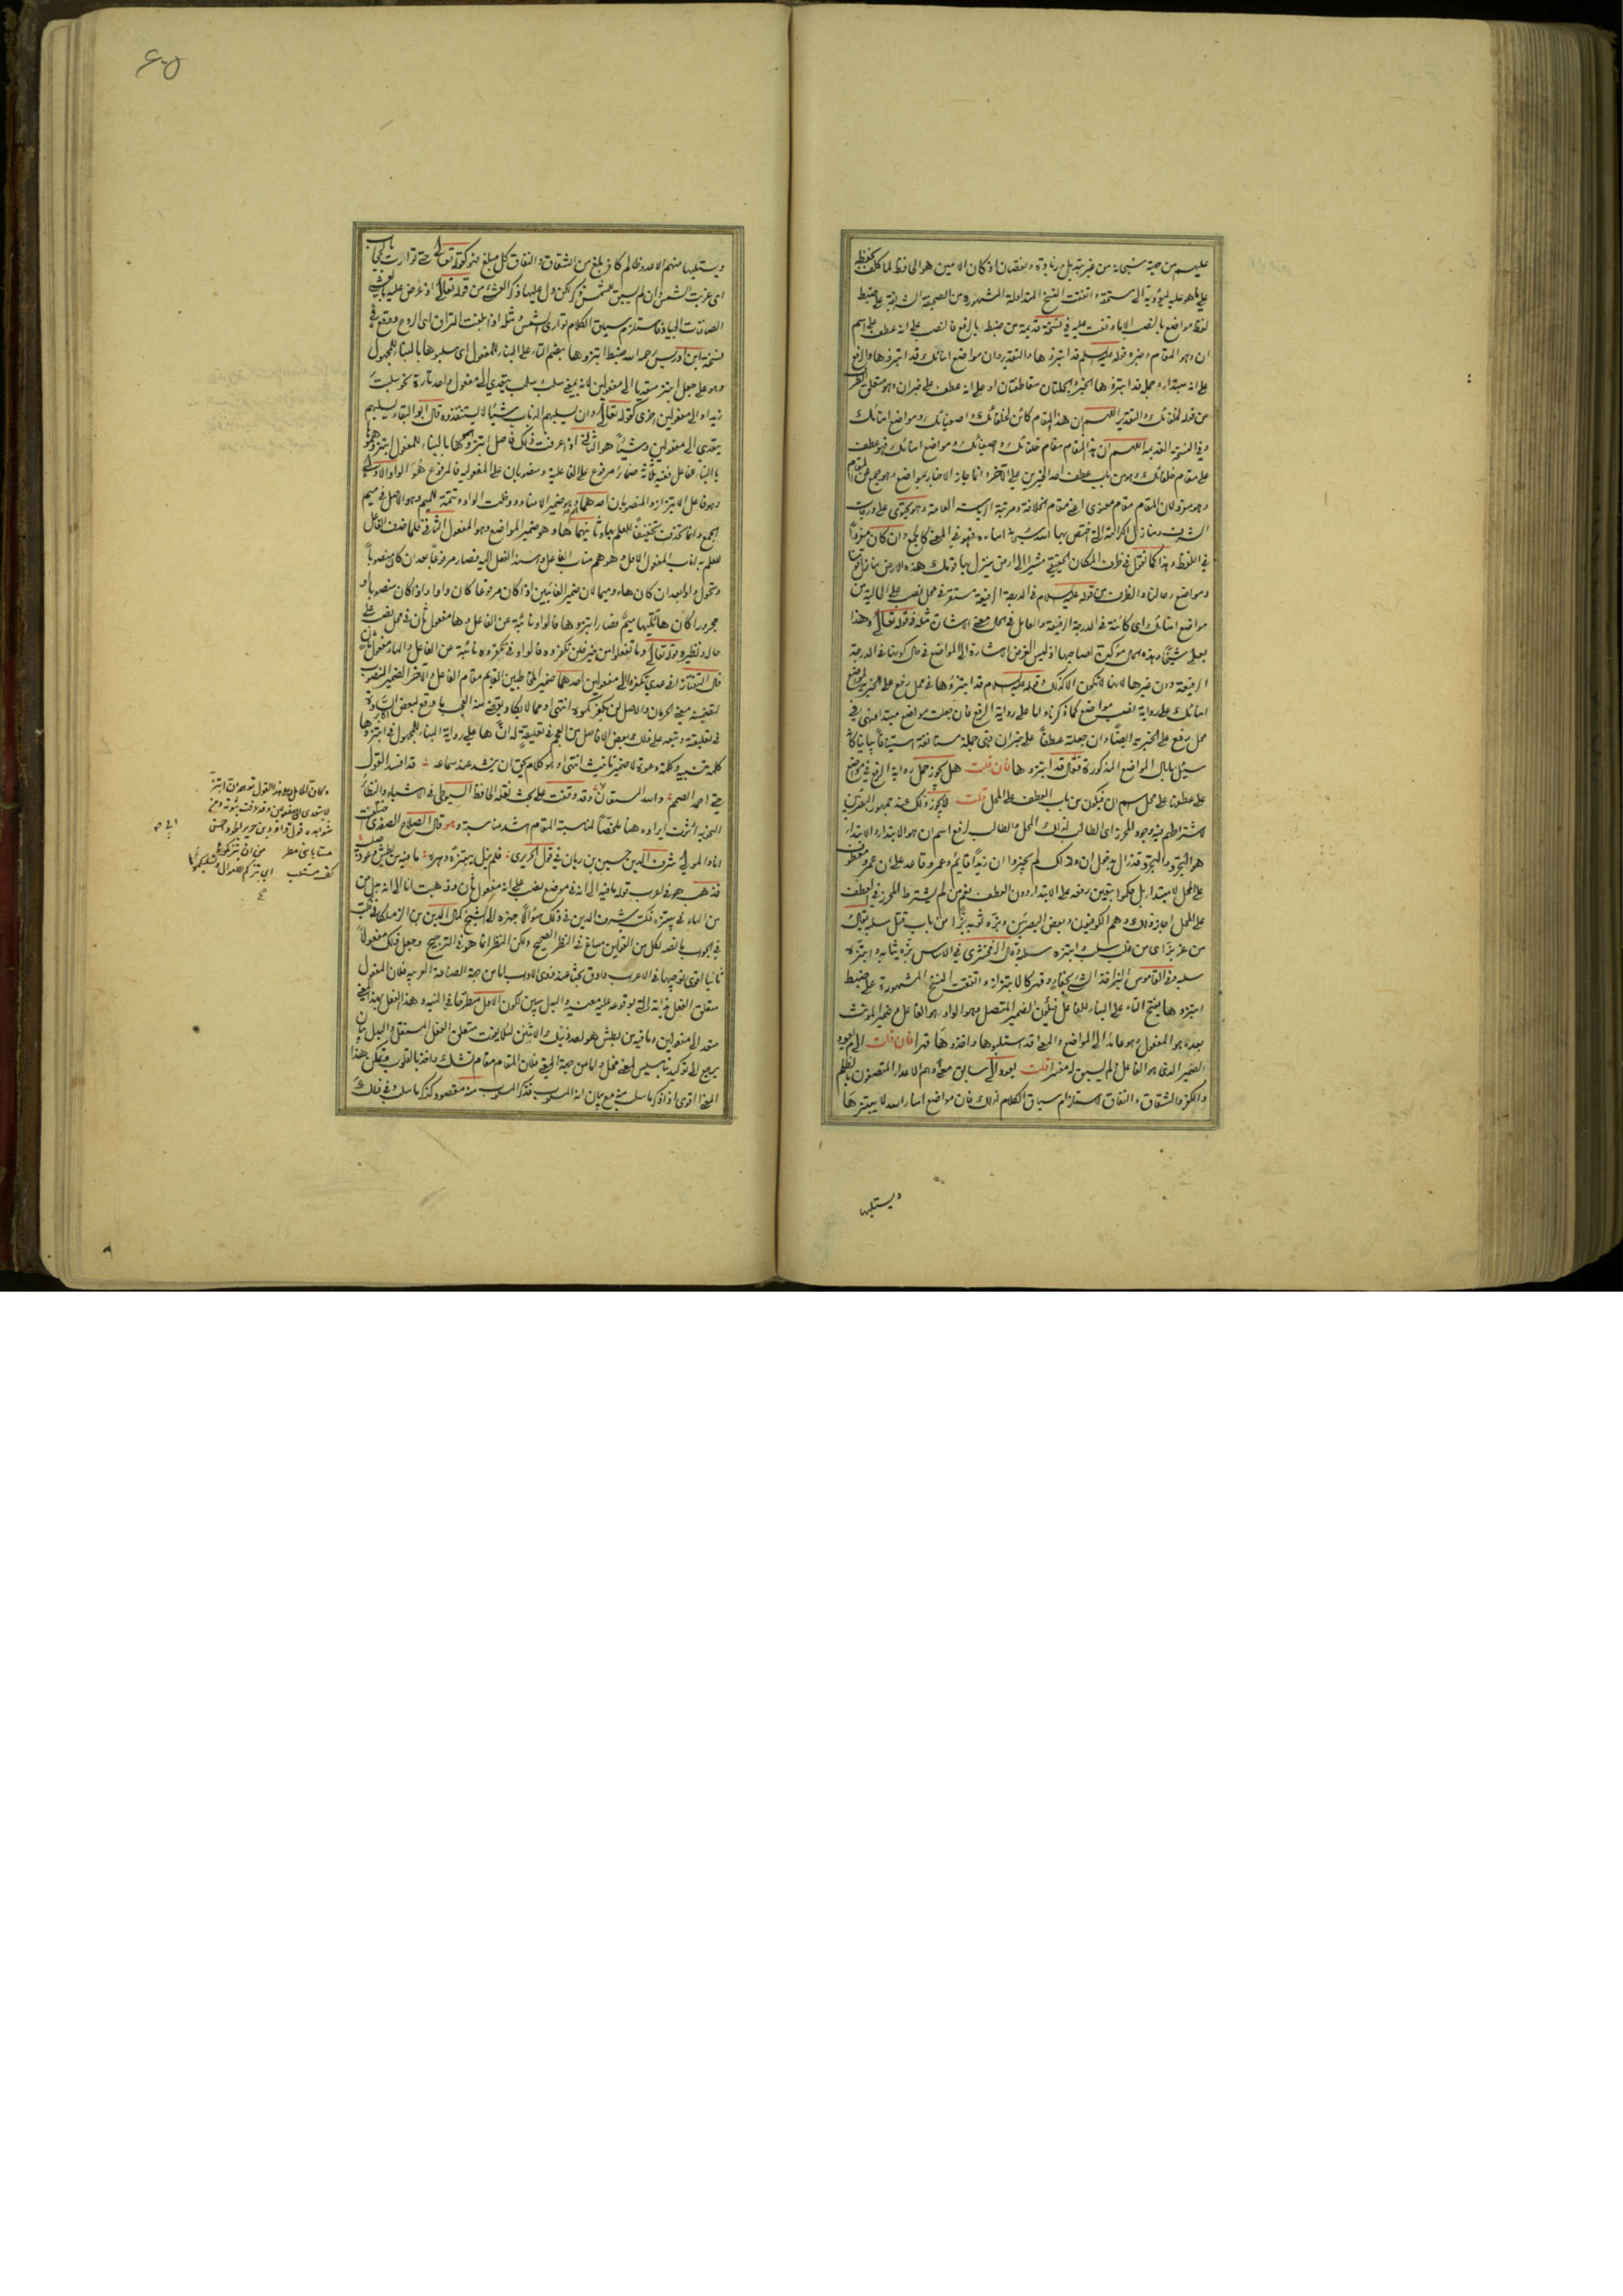 عليهم من جهته سبحانه من غير تبديل وزيادة ونقصان اذ كان الامين هو الحافظ لما كلف بحفظه
على ما هو عليه ليؤديه الى مستحقه واتفقت النسخ المتداولة المشهورة من الصحيفة الشريفة على ضبط
لفظ مواضع بالنصب الا ما وقفت عليه في نسخة قديمة من ضبطه بالرفع فالنصب على انه عطف على اسم
ان وهو المقام وخبره قوله عليه السلم قد ابتزوها والتقدير وان مواضع امنائك قد ابتزوها والرفع
على انه مبتدا وجملة قد ابتزوها الخبر والجملتان متعاطفتان او على انه عطف على خبر ان وهو متعلق الظرف
من قوله لخلفائك والتقدير اللهم ان هذا المقام كائن لخلفائك واصفيائك ومواضع امنائك
وفي النسخة القديمة اللهم ان هذا المقام مقام خلفائك واصفيائك ومواضع امنائك فهو عطف
على مقام خلفائك وهو من باب عطف احد الخبرين على الآخر وانما جاز الاخبار بمواضع وهو جمع عن المقام
وهو مفرد لان المقام مقام معنوي اعني مقام الخلافة ومرتبة الرياسة العامة وهو يحتوي على درجات
الشرف ومنازل الكرامة التي اختص بها الله سبحانه امناءه فهو في المعنى كالجمع وان كان مفردا
في اللفظ وهذا كما تقول في ظرف المكان الحقيقي مشيرا الى ارض ينزل بها قومك هذه الارض منازل قومنا
ومواضع رحالنا والظرف من قوله عليه السلام في الدرجة الرفيعة مستقر في محل نصب على الحالية من
مواضع امنائك اي كائنة في الدرجة الرفيعة والعامل في الحال معنى الاشارة مثله في قوله تعالى وهذا
بعلي شيخا وهذه الحال مؤكدة لصاحبها اذ ليس الغرض الاشارة الى المواضع في حال كونها في الدرجة
الرفيعة دون غيرها لانها لا تكون الا كذلك وقوله عليه السلام قد ابتزوها في محل رفع على الخبرية لمواضع
امنائك على رواية نصب مواضع كما ذكرناه واما على رواية الرفع فان جعلت مواضع مبتدا فهي في
محل رفع على الخبرية ايضا وان جعلته عطفا على خبر ان فهي جملة مستانفة استينافا بيانيا كانه
سئل ما بال المواضع المذكورة فقال قد ابتزوها فان قلت هل يجوز حمل رواية الرفع في مواضع
على عطفها على محل اسم ان فيكون من باب العطف على المحل قلت لا يجوز ذلك عند جمهور البصريين
لاشتراطهم فيه وجود المحرز اي الطالب لذلك المحل والطالب لرفع اسم ان هو الابتداء والابتداء
هو التجرد والتجرد قد زال بدخول ان ولذلك لم يجيزوا ان زيدا قائم وعمرو قاعد على ان عمرو معطوف
على المحل لا مبتدا بل حكموا بتعين رفعه على الابتداء دون العطف نعم من لم يشترط المحرز في العطف
على المحل اجاز ذلك وهم الكوفيون وبعض البصريين وبزه ثوبه بزا من باب قتل سلبه يقال
من عز بز اي من غلب سلب وابتزه سلبه وقال الزمخشري في الاساس بزه ثيابه وابتزه
سلبه وفي القاموس البز اخذ الشيء بجفاء وقهر كالابتزاز واتفقت النسخ المشهورة على ضبط
ابتزوها بفتح التاء على البناء للفاعل فيكون الضمير المتصل وهو الواو هو الفاعل وضمير المؤنث
بعده هو المفعول وهو عائد الى المواضع والمعنى قد استلبوها واخذوها قهرا فان قلت الى م يعود
الضمير الذي هو الفاعل ولم يسبق له مفسر قلت يعود الى سابق معنى وهم الاعداء المتصفون بالظلم
والكفر والشقاق والنفاق لاستلزام سياق الكلام لذلك فان مواضع امناء الله لا يبتزها
ويستلبها
ويستلبها منهم الا عدو ظالم كافر بلغ من الشقاق والنفاق كل مبلغ فهو كقوله تعالى حتى توارت بالحجاب
اي غربت الشمس ان لم يسبق للشمس ذكر لكن دل عليها ذكر العشي من قوله تعالى اذ عرض عليه بالعشي
الصافنات الجياد فاستلزم سياق الكلام توارى الشمس ومثله اذا بلغت التراقي اي الروح ووقع في
نسخة ابن ادريس رحمه الله ضبط ابتزوها بضم التاء على البناء للمفعول اي سلبوها بالبناء للمجهول
وهو على جعل ابتز متعديا الى مفعولين لانه بمعنى سلب وسلب يتعدى الى مفعول واحد تارة نحو سلبت
زيدا والى مفعولين اخرى كقوله تعالى وان يسلبهم الذباب شيئا لا يستنقذوه قال ابو البقاء يسلبهم
يتعدى الى مفعولين وشيئا هو الثاني اذا عرفت ذلك فاصل ابتزوها بالبناء للمفعول ابتزوهموها
بالبناء للفاعل ففيه ثلاثة ضمائر مرفوع على الفاعلية ومنصوبان على المفعولية فالمرفوع هو الواو الاولى
وهو فاعل الابتزاز والمنصوبان احدهما هم وهو ضمير الامناء ودخلت الواو تتمة للميم وهو الاصل في ميم
الجمع وانما تحذف تخفيفا للعلم بها وثانيهما ها وهو ضمير المواضع وهو المفعول الثاني فلما حذف الفاعل
للعلم به اناب المفعول الاول وهو هم مناب الفاعل واسند الفعل اليه فصار مرفوعا بعد ان كان منصوبا
وتحول واوا بعد ان كان هاء وميما لان ضمير الغائبين اذا كان مرفوعا كان واوا واذا كان منصوبا او
مجرورا كان هاء تليها ميم فصار ابتزوها فالواو نائبة عن الفاعل وها مفعول ثان في محل نصب على
حاله ونظيره قوله تعالى وما تفعلوا من خير فلن تكفروه فالواو في تكفروه نائبة عن الفاعل والهاء مفعول ثان
قال التفتازاني عدي تكفروا الى مفعولين احدهما ضمير المخاطبين القائم مقام الفاعل والآخر الضمير المنصوب
لتضمينه معنى الحرمان والاصل لن يكفركموه انتهى ومما لا يكاد يقضى منه العجب ما وقع لبعض السادة
في تعليقته وتبعه على ذلك بعض الافاضل من العجم في تعليقته ان ها على رواية البناء للمجهول في ابتزوها
كلمة تنبيه وكلمة دعوة لا ضمير تانيث انتهى وهو كلام يحق ان ينشد عند سماعه قد افسد القول
حتى احمد الصمم والله المستعان وقد وقفت على بحث نقله الحافظ السيوطي في الاشباه والنظائر
النحوية اثرت ايراده هنا ملخصا لمناسبته المقام اشد مناسبة وهو قال الصلاح الصفدي
انا والمولى شرف الدين حسين بن ريان في قول الحريري فلم يزل يبتزه دهره ما فيه من بطش وعود صليب
فذهب هو في اعراب قوله ما فيه الى انه في موضع نصب على انه مفعول ثان وذهبت انا الى انه بدل من
من الهاء في يبتزه فكتب شرف الدين في ذلك سؤالا جهزه الى الشيخ كمال الدين بن الزملكاني فكتب
في الجواب ما نصه لكل من القولين مساغ في النظر الصحيح ولكن النظر انما هو في الترجيح وجعل ذلك مفعولا
ثانيا اقوى توجيها في الاعراب وادق بحثا عند ذوي الاداب اما من جهة الصناعة العربية فلان المفعول
متعلق الفعل بذاته التي بوقوعه عليه معنية والبدل مبين لكون الاول مطرحا في النية وهذا الفعل بهذا المعنى
متعد الى مفعولين وما فيه من بطش هو احد ذينك الاثنين لئلا يفوت متعلق الفعل المستقل والبدل بيان
يرجع الى توكيد بتاسيس المعنى مخل واما من جهة المعنى فلان المقام مقام تشك واخذ بالقلوب وتمكن هذا
المعنى اقوى اذا ذكر ما سلب منه مع بيان انه المسلوب فذكر المسلوب منه مقصود كذكر ما سلب وفي ذلك